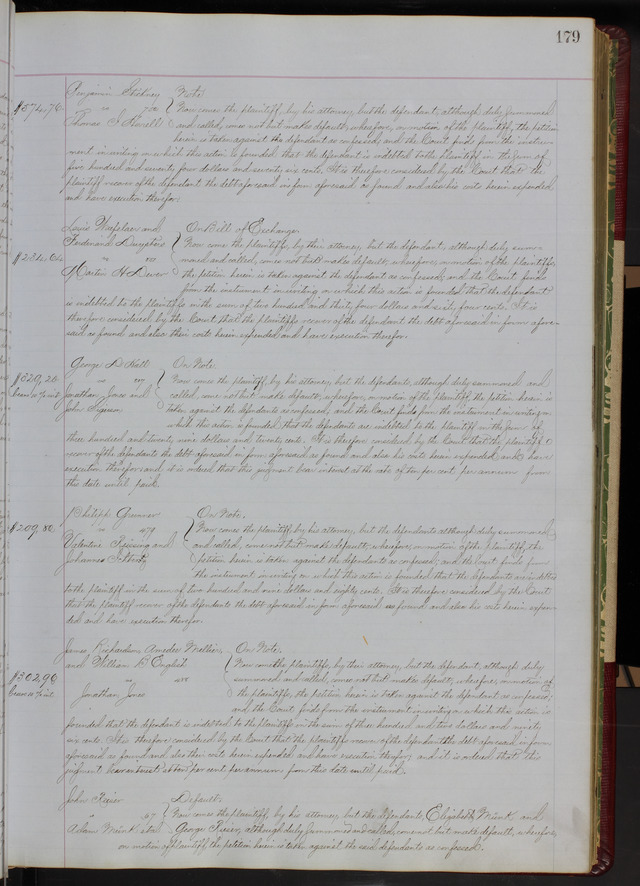 179
Benjamin Stickney Note
$574,76 vs 702 Now comes the plaintiff, by his attorney, but the defendant, although duly summoned
Thomas and called, comes not but makes default; wherefore, on motion of the plaintiff, the petition
herein is taken against the defendant as confessed, and the Court finds from the instru-
ment in writing on which this action is founded that the defendant is indebted to the plaintiff in the sum of
five hundred and seventy four dollars and seventy six cents. It is therefore considered by the Court that the
plaintiff recover of the defendant the debt aforesaid in form aforesaid as found and also his costs herein expended
and have execution therefor.
Louis and On Bill of Exchange
Ferdinand Now come the plaintiffs, by their attorney, but the defendant, although duly sum-
vs moned and called, comes not but makes default; wherefore, on motion of the plaintiffs
Martin H the petition herein is taken against the defendant as confessed, and the Court finds
from the instrument in writing on which this action is founded that the defendant
is indebted to the plaintiffs in the sum of two hundred and thirty four dollars and sixty four cents. It is
therefore considered by the Court that the plaintiffs recover of the defendant the debt aforesaid in form afore-
said as found and also their costs herein expended and have execution therefor.
George D Hall On Note
$320,20 vs Now comes the plaintiff, by his attorney, but the defendants, although duly summoned and
Jonathan Jones and called, come not but make default; wherefore, on motion of the plaintiff, the petition herein is
John taken against the defendants as confessed, and the Court finds from the instrument in writing on
which this action is founded that the defendants are indebted to the plaintiff in the sum of
three hundred and twenty nine dollars and twenty cents. It is therefore considered by the Court that the plaintiff
recover of the defendants the debt aforesaid in form aforesaid as found and also his costs herein expended and have
execution therefor; and it is ordered that this judgment bear interest at the rate of ten per cent. per annum from
this date until paid.
Philip On Note.
$209,80 vs 479 Now comes the plaintiff, by his attorney, but the defendants although duly summoned
Valentine and and called, come not but make default; wherefore, on motion of the plaintiff, the
Johannes petition herein is taken against the defendants as confessed, and the Court finds from
the instrument in writing on which this action is founded that the defendants are indebted
to the plaintiff in the sum of two hundred and nine dollars and eighty cents. It is therefore considered by the Court
that the plaintiff recover of the defendants the debt aforesaid in form aforesaid as found and also his costs herein expen-
ded and have execution therefor.
James Richardson Amedee On Note.
and William B English Now come the plaintiffs, by their attorney, but the defendant, although duly
$302,96 vs summoned and called, comes not but makes default; wherefore, on motion of
Jonathan Jones the plaintiffs, the petition herein is taken against the defendant as confessed
and the Court finds from the instrument in writing on which this action is
founded that the defendant is indebted to the plaintiffs in the sum of three hundred and two dollars and ninety
six cents. It is therefore considered by the Court that the plaintiffs recover of the defendant the debt aforesaid in form
aforesaid as found and also their costs herein expended and have execution therefor; and it is ordered that this
judgment bear interest at ten per cent per annum from this date until paid.
John Default.
vs Now comes the plaintiff, by his attorney, but the defendants, Elizabeth and
Adam et al George although duly summoned and called, come not but make default; wherefore,
on motion of plaintiff the petition herein is taken against the said defendants as confessed.